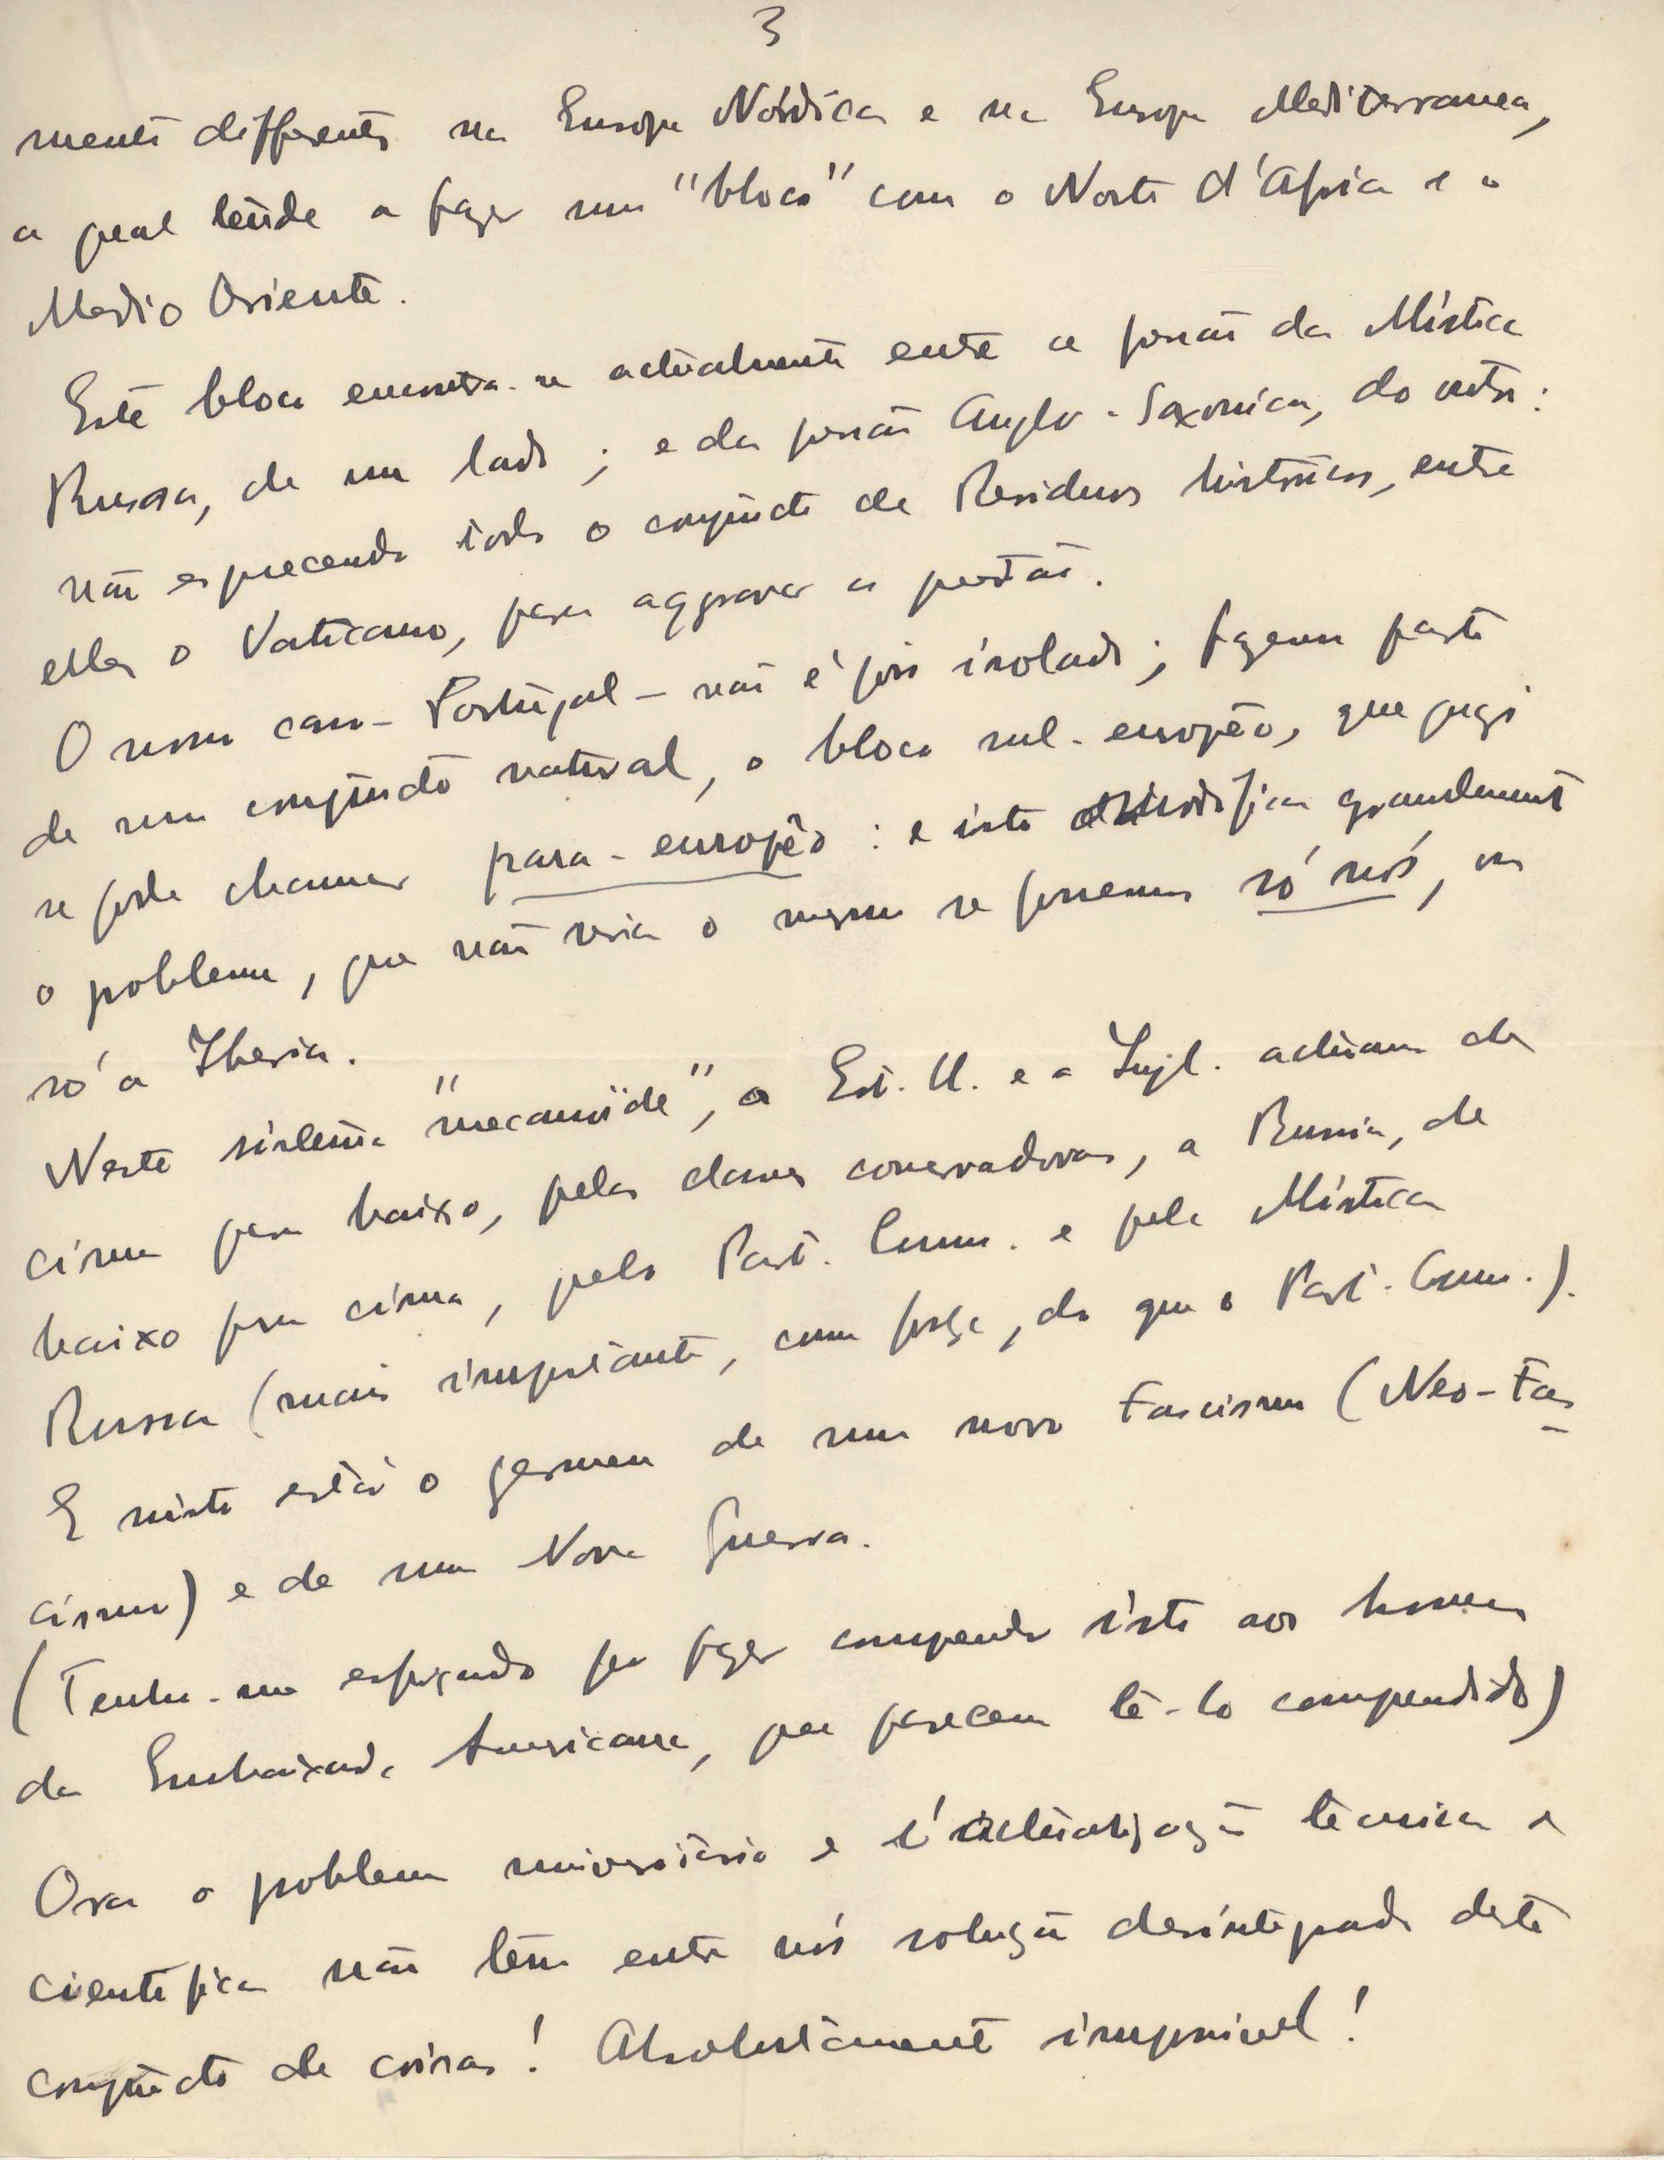 3
mente differente na Europa Nórdica e na Europa Mediterranea,
a qual tende a fazer um "bloco" com o Norte d'Africa e o
Medio Oriente.
Este bloco encontra-se actualmente entre a pressão da Mística
Russa, de um lado; e da pressão Anglo-Saxonica, do outro:
não esquecendo todo o conjuncto de Residuos históricos, entre
elles o Vaticano, para aggravar a questão.
O nosso caso - Portugal - não é pois isolado; fazemos parte
de um conjuncto natural, o bloco sul-europêo, que quasi
se pode chamar para-europêo: e isto modifica grandemente
o problema, que não seria o mesmo se fossemos só nós, ou
só a Iberia.
Neste sistema "mecanoïde", os Est. U. e a Ingl. actuam de
cima para baixo, pelas classes conservadoras, a Russia, de
baixo para cima, pelo Part. Comm. e pela Mística
Russa (mais importante, como força, do que o Part. Comm.).
E nisto está o germen de um novo Fascismo (Neo-Fas
cismo) e de uma Nova Guerra.
(Tenho-me esforçado por fazer comprender isto aos homens
da Embaixada Americana, que parecem tê-lo comprendido)
Ora o problema universitário e a actualização técnica e
cientifica não têm entre nós solução desintegrada deste
conjuncto de coisas! Absolutamente impossivel!